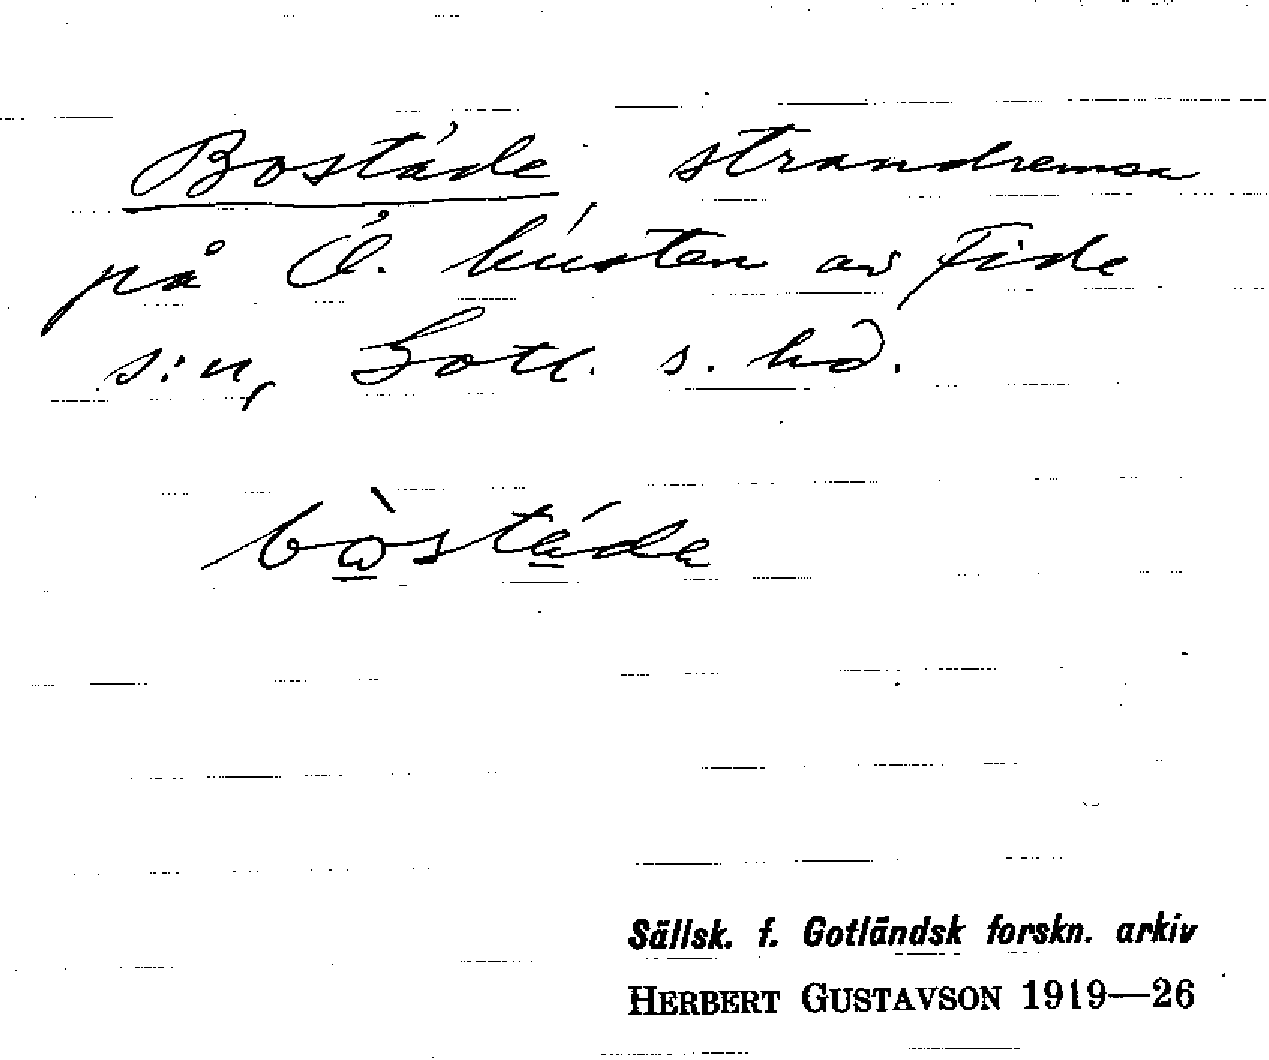 Bostäde, strandremsa
på Ö. kusten av Fide
s:n, Gotl. s. hd.
bòstäde
Sällsk. f. Gotländsk forskn. arkiv
HERBERT GUSTAVSON 1919—26